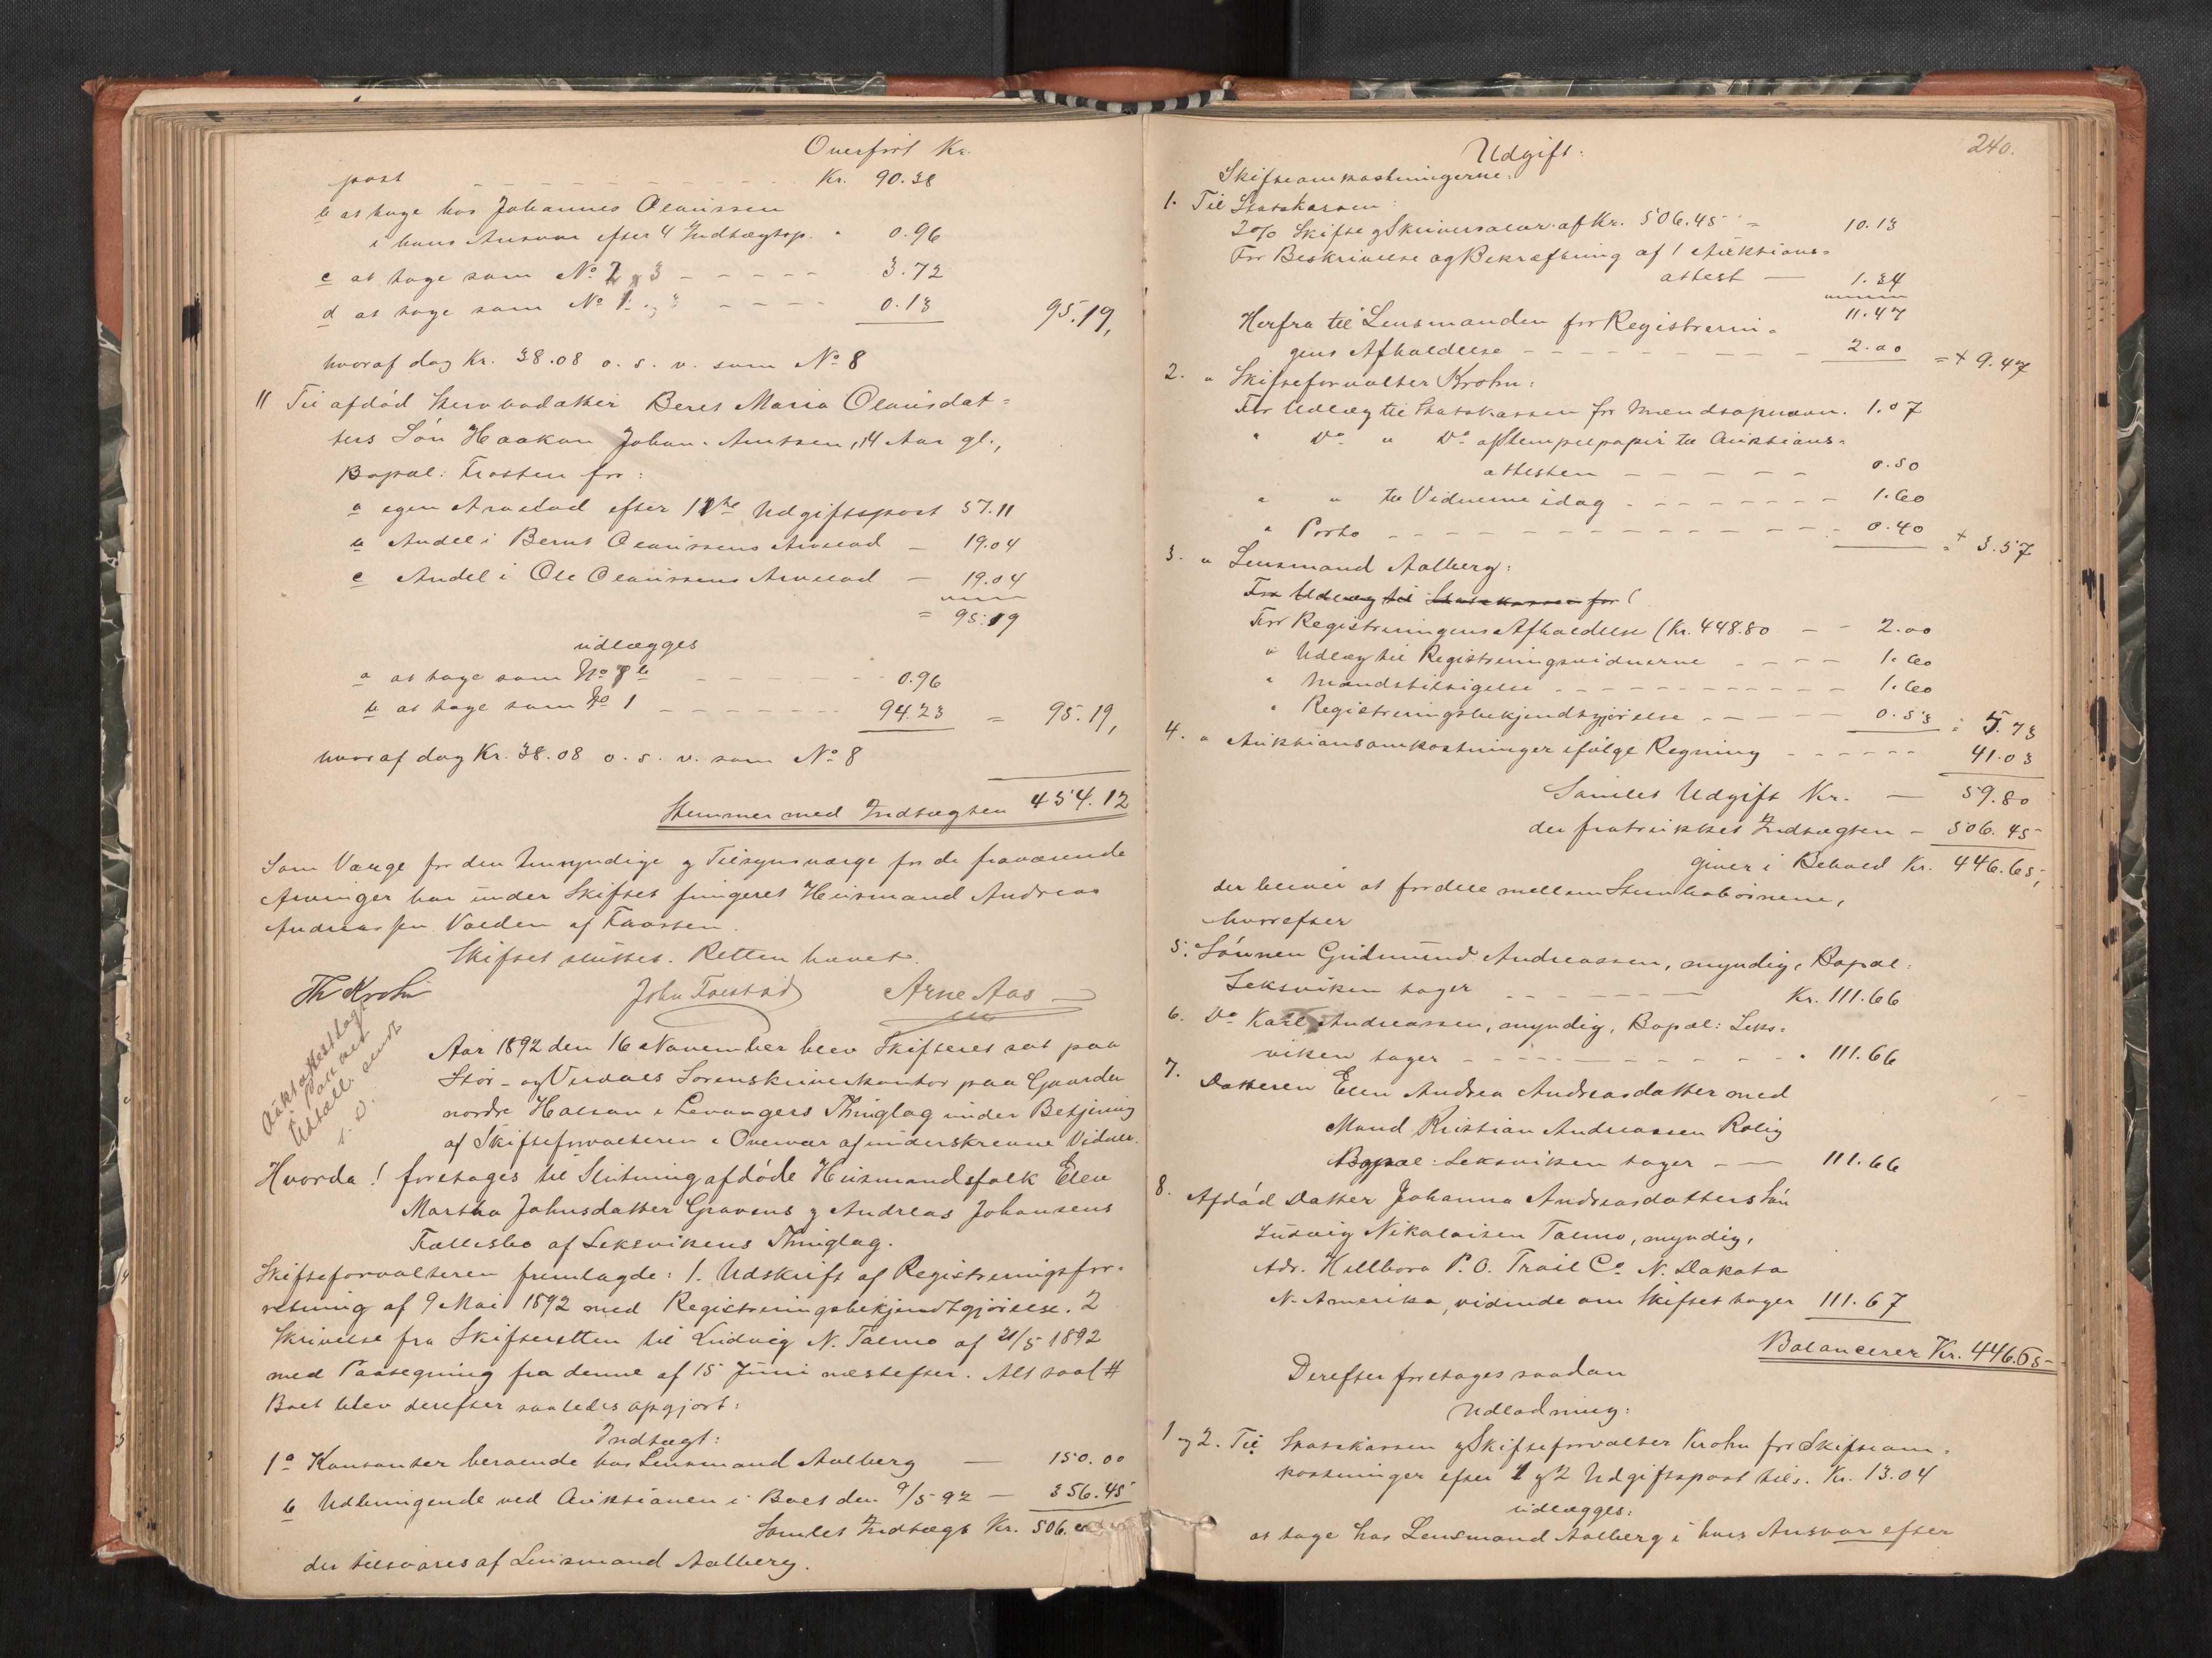 Overført Kr.
post - - - - Kr. 90.38
b at tage hos Johannes Olaussen
i hans Ansvar efter 4 Indtægtsp. " 0.96
c at tage som No 2 og 3 - - - - - 3.72
d at tage som No 1 og 3 - - - - 0.13 95.19,
hvoraf dog Kr. 38.08 o. s. v. som No 8
11 Til afdød Stervbodatter Beret Maria Olausdat=
ters Søn Haakon Johan Arntsen, 14 Aar gl.,
Bopæl: Frosten for:
a egen Arvelod efter 11te Udgiftspost 57.11
b Andel i Bernt Olaussens Arvelod - 19.04
c Andel i Ole Olaussens Arvelod - 19.04
= 95.19
udlægges
a at tage som No 8 b - - - - 0.96
b at tage som No 1 - - - - 94.23 = 95.19,
hvoraf dog Kr. 38.08 o. s. v. som No 8
Stemmer med Indtægten 454.12
Som Værge for den Umyndige og Tilsynsværge for de fraværende
Arvinger har under Skiftet fungeret Husmand Andreas
Andreassen Volden af Frosten.
Skiftet sluttet. Retten hævet.
Th Krohn John Folstad Arne Aas
Auktattest lagt
i Pakken
Udtall. sendt
s. D.
Aar 1892 den 16 November blev Skifteret sat paa
Stør- og Verdals Sorenskriverkontor paa Gaarden
nordre Halsan i Levangers Thinglag under Betjening
af Skifteforvalteren i Overvær af underskrevne Vidner.
Hvorda! foretages til Slutning afdøde Husmandsfolk Elen
Martha Johnsdatter Gravens og Andreas Johansens
Fællesbo af Leksvikens Thinglag.
Skifteforvalteren fremlagde: 1. Udskrift af Registreringsfor=
retning af 9 Mai 1892 med Registreringsbekjendtgjørelse. 2
Skrivelse fra Skifteretten til Ludvig N. Talmo af 21/5 1892
med Paategning fra denne af 15 Juni næstefter. Alt saal #
Boet blev derefter saaledes opgjort:
Indtægt:
1 a Kontanter beroende hos Lensmand Aalberg - 150.00
b Udbringende ved Auktionen i Boet den 9/5 92 - 356.45
Samlet Indtægt Kr. 506.
der tilsvares af Lensmand Aalberg.
240.
Udgift:
Skifteomkostningerne:
1. Til Statskassen:
2% Skifte og Skriversalær af Kr. 506.45 = 10.13
For Beskrivelse og Bekræftning af 1 Auktions=
attest - 1.34
11.47
Herfra til Lensmanden for Registrerin=
gens Afholdelse - - - - 2.00 = + 9.47
2. " Skifteforvalter Krohn:
For Udlæg til Statskassen for Mændsopnævn. 1.07
" Do " Do af Stempelpapir til Auktions=
attesten - - - - - 0.50
" " til Vidnerne idag - - - - 1.60
" Porto - - - - 0.40 = + 3.57
3. " Lensmand Aalberg:
For Udlæg til Statskassen for (
For Registreringens Afholdelse (Kr. 448.80 - - 2.00
" Udlæg til Registreringsvidnerne - - - - 1.60
" Mændstilsigelse - - - - 1.60
" Registreringsbekjendtgjørelse - - - - 0.53 = 5.73
4. " Auktionsomkostninger ifølge Regning - - - - 41.03
Samlet Udgift Kr. - 59.80
der fratrukket Indtægten - 506.45
giver i Behold Kr. 446.65,
der bliver at fordele mellem Stervbobørnene,
hvorefter
5. Sønnen Gudmund Andreassen, myndig, Bopæl:
Leksviken tager - - - - Kr. 111.66
6. Do Karl Andreassen, myndig, Bopæl: Leks=
viken tager - - - - " 111.66
7. Datteren Elen Andrea Andreasdatter med
Mand Kristian Andreassen Rolig
Bopæl: Leksviken tager - - 111.66
8. Afdød Datter Johanna Andreasdatters Søn
Ludvig Nikolaisen Talmo, myndig,
Adr. Hillboro P. O. Trail Co N. Dakota
N. Amerika, vidende om Skiftet tager 111.67
Balancerer Kr. 446.65
Derefter foretages saadan
Udlodning:
1 og 2. Til Statskassen og Skifteforvalter Krohn for Skifteom=
kostninger efter 1 og 2 Udgiftspost tils. Kr. 13.04
udlægges:
at tage hos Lensmand Aalberg i hans Ansvar efter